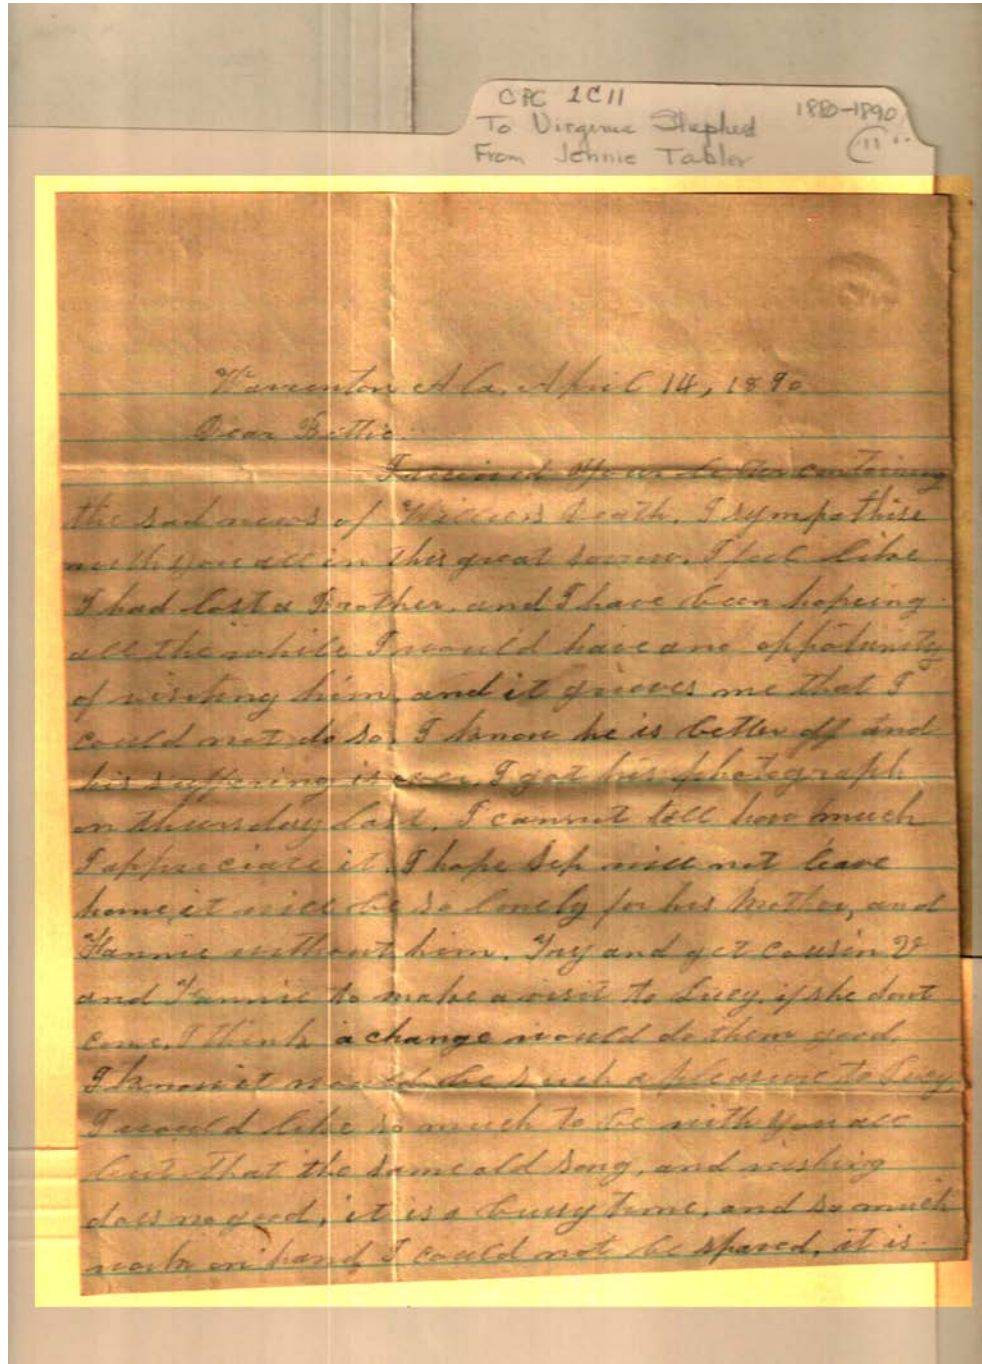 CPC 1C11
1880-1890
To Virginia Shepherd
"11"
From Jennie Tabler
Warrenton Ala. April 14, 1890
Dear Bettie.
I received your letter containing
the sad news of Willie's Death. I sympathise
with you all in this great sorrow. I feel like
I had lost a Brother, and I have been hopeing
all the while I would have an oppotunity
of visiting him, and it grieves me that I
could not do so. I know he is better off and
his suffering is over. I got his photograph
on thursday last. I cannot tell how much
I appreciate it. I hope Sep will not leave
home, it will be so lonely for his Mother, and
Fannie without him. Try and get cousin V
and Fannie to make a visit to Lucy, if she dont
come. I think a change would do them good.
I know it would be such a pleasure to Lucy.
I would like so much to be with you all
but that the same old song, and wishing
does no good, it is a busy time, and so much
work on hand I could not be spared, it is